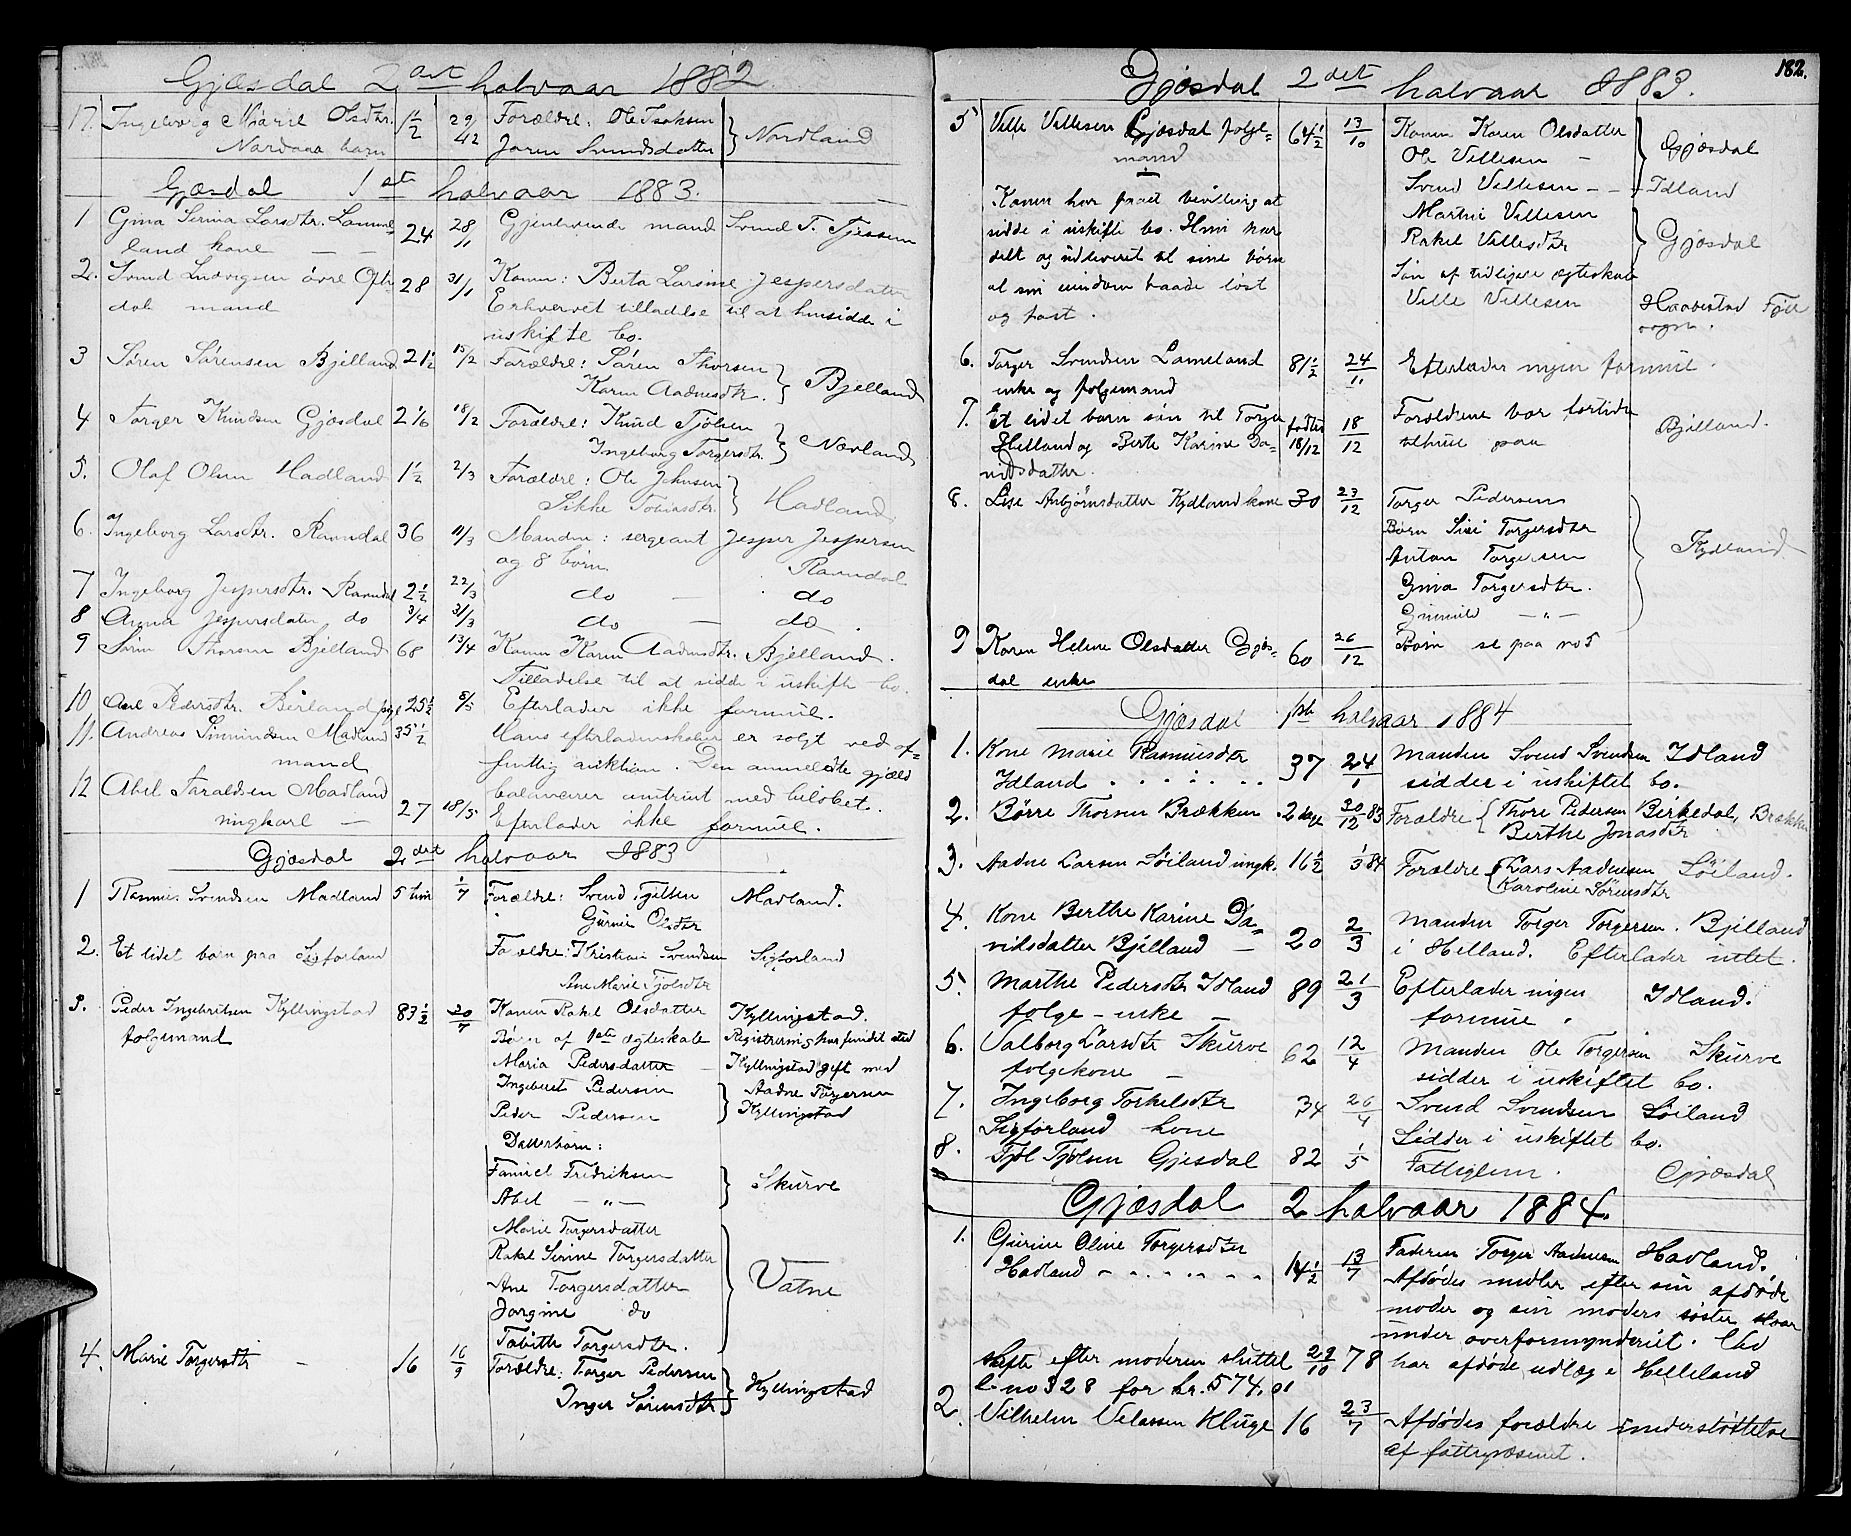 Gjæsdal 2det halvaar 1882.
17. Ingeborg Marie Olsdtr. 1/2 29/12 Forældre: Ole Isaksen
barn Joren Svendsdatter Nordland
Gjæsdal 1ste halvaar 1883.
1 Gina Serina Larsdtr. 24 28/1 Gjenlevende mand Svend T. Tjessem
land kone — —
2. Svend Ludvigsen övre 28 31/1 Konen: Berta Larsine Jespersdatter
dal mand Erhvervet tilladelse til at hensidde i
uskifte bo.
3 Søren Sørensen Bjelland 2 1/2 15/2 Forældre: Søren Thorsen
Karen Aadnesdtr. Bjelland
4 Torger Knudsen Gjæsdal 2 1/6 18/2 Forældre: Knud Tjølsen
Ingeborg Torgersdtr. Nævland
5. Olaf Olsen Hadland 1 1/2 2/3 Forældre: Ole Johnsen
Sikke Tobiasdtr. Hadland
6. Ingeborg Larsdtr. Ravndal 36 11/3 Manden: sergeant Jesper Jespersen
og 8 børn Ravndal
7 Ingeborg Jespersdtr. Ravndal 2 1/2 22/3 do — do
8 Anna Jespersdater do 3/4 31/3 do — do.
9 Sørin Thorsen Bjelland 68 13/4 Konen Karen Aadnesdtr. Bjelland.
Tilladelse til at sidde i uskifte bo.
10 Pedersdtr. pige 25 1/2 8/5 Efterlader ikke formue.
11. Andreas Madland 35 1/2 Hans efterladenskaber er solgt ved of=
mand fentlig auktion. Den anmeldte gjæld
12 Abel Taraldsen Madland balancerer omtrent med beløbet.
ungkarl — 27 18/5 Efterlader ikke formue.
Gjæsdal 2det halvaar 1883
1 Rasmus Svendsen Madland 5 tim 1/7 Forældre: Svend Madland.
Gurine Olsdtr
2. Et lidet barn paa Sigforland Forældre: Kristian Svendsen Sigforland
Ane Marie Tjølsdtr
3. Peder Ingebretsen Kyllingstad 83 1/2 20/7 Konen Rakel Olsdatter Kyllingstad.
følgemand Børn af 1ste ægteskab Registrering har fundet sted
Maria Pedersdatter — Kyllingstad gift med
Ingebret Pedersen Aadne Torgersen
Peder Pedersen Kyllingstad
Datterbørn:
Samuel Fridriksen
Abel — „ — Skurve
Marie Torgersdatter
Rakel Serine Torgersdatter
Ane Torgersdatter Vatne
Jorgine do
Tabitha Torgersdtr.
4. Marie Torgersdtr — 16 16/9 Forældre: Torger Pedersen
Inger Sørensdtr Kyllingstad
182.
Gjøsdal 2det halvaar 1883.
5 Ville Villesen Gjæsdal følge= 64 1/2 13/10 Konen Karen Olsdatter
mand Ole Villesen — Gjæsdal
Svend Villesen — — Idland
Konen har faaet bevilling at Martin Villesen
sidde i uskifte bo. Hun har Rakel Villesdtr Gjøsdal
delt og udleveret til sine børn Søn af tidligere ægteskab
al sin eiendom baade løst Ville Villesen Haavestad
og fast. sogn.
6. Torger Svendsen Lameland 81 1/2 24/11 Efterlader ingen formue.
enke og følgemand
7. Et lidet barn søn til Torger fødten 18/12 Forældrene har fortiden
Helland og Berte Karine Da= 18/12 tilhuse paa Bjelland.
vidsdatter.
8. Lise Asbjørnsdatter Kydland kone 30 23/12 Torger Pedersen
Børn Torgersdtr
Anton Torgersen Kydland
Gina Torgersdtr.
Gunnild — „ —
9 Karen Helene Olsdatter Gjæs= 60 26/12 Børn se paa no 5
dal enke
Gjæsdal 1ste halvaar 1884
1. Kone Marie Rasmusdtr 37 24/1 Manden Svend Svendsen Idland
Idland . . . . . . sidder i uskiftet bo.
2. Børre Thorsen Brækken 2 dage 30/12 83 Forældre Thore Pedersen Birkedal, Brækken
Berthe Jonasdtr
3. Aadne Larsen Søiland ungk. 16 1/2 1/3 84 Forældre Lars Aadnesen Søiland.
Karoline Sørensdtr
4. Kone Berthe Karine Da= 20 2/3 Manden Torger Torgersen. Bjelland
vidsdatter Bjelland — i Helland. Efterlader intet.
5. Marthe Pedersdtr Idland 89 21/3 Efterlader ingen Idland.
følge-enke — formue.
6. Valborg Larsdtr Skurve 62 12/4 Manden Ole Torgersen Skurve
følgekone — sidder i uskiftet bo.
7. Ingeborg Torkelsdtr 34 26/4 Svend Svendsen Søiland
Sigforland kone Sidder i uskiftet bo.
8. Tjøl Tjølsen Gjesdal 82 1/5 Fattiglem. Gjæsdal
Gjæsdal 2 halvaar 1884.
1. Gurine Oline Torgersdtr 14 1/2 13/7 Faderen Torger Aadnesen Hadland.
Hadland . . . . . . Afdødes midler efter sin afdøde
moder og sin moders søster staar
under overformynderiet. Ved
skifte efter moderen sluttet 29/10 78 har afdøde udlæg i Helleland
l. no 328 for kr. 574,01
2. Vilhelm Velassen Kluge 16 23/7 Afdødes forældre understøttelse
af fattigvæsenet.